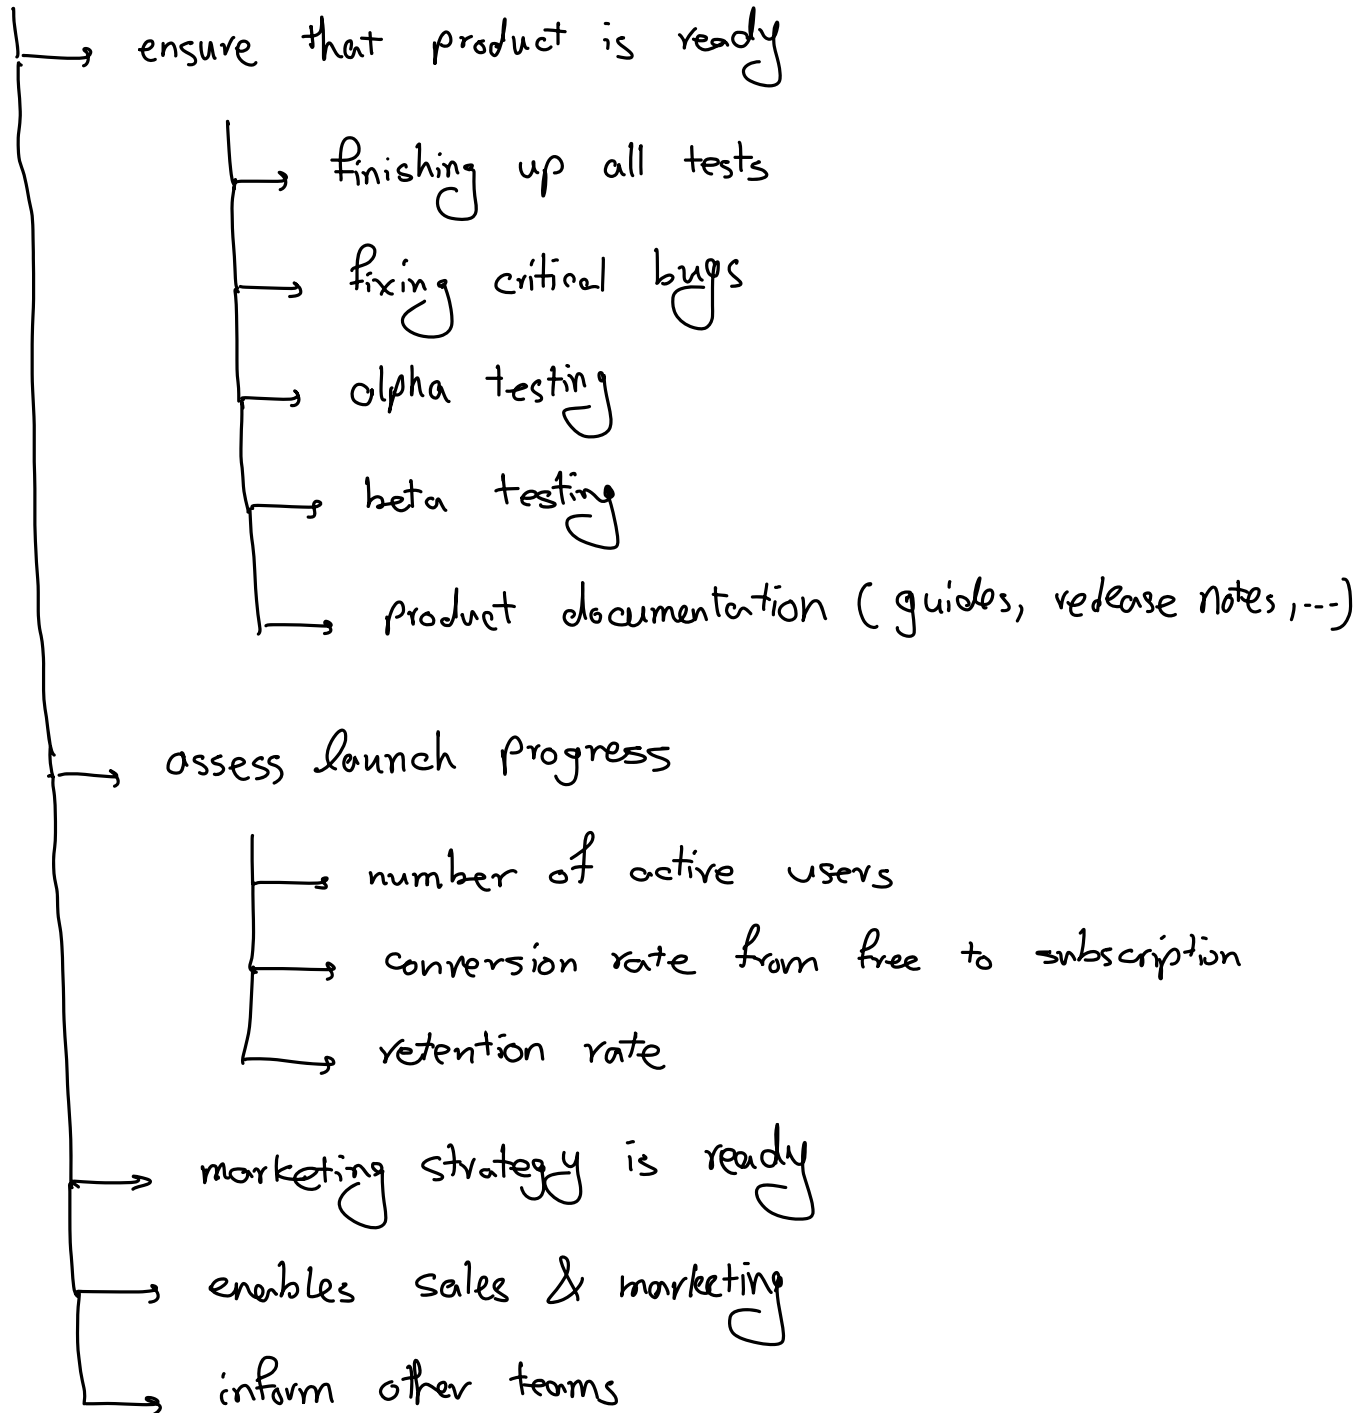 ensure that product is ready
finishing up all tests
fixing critical bugs
alpha testing
beta testing
product documentation (guides, release notes,...)
assess launch progress
number of active users
conversion rate from free to subscription
retention rate
marketing strategy is ready
enables sales & marketing
inform other teams